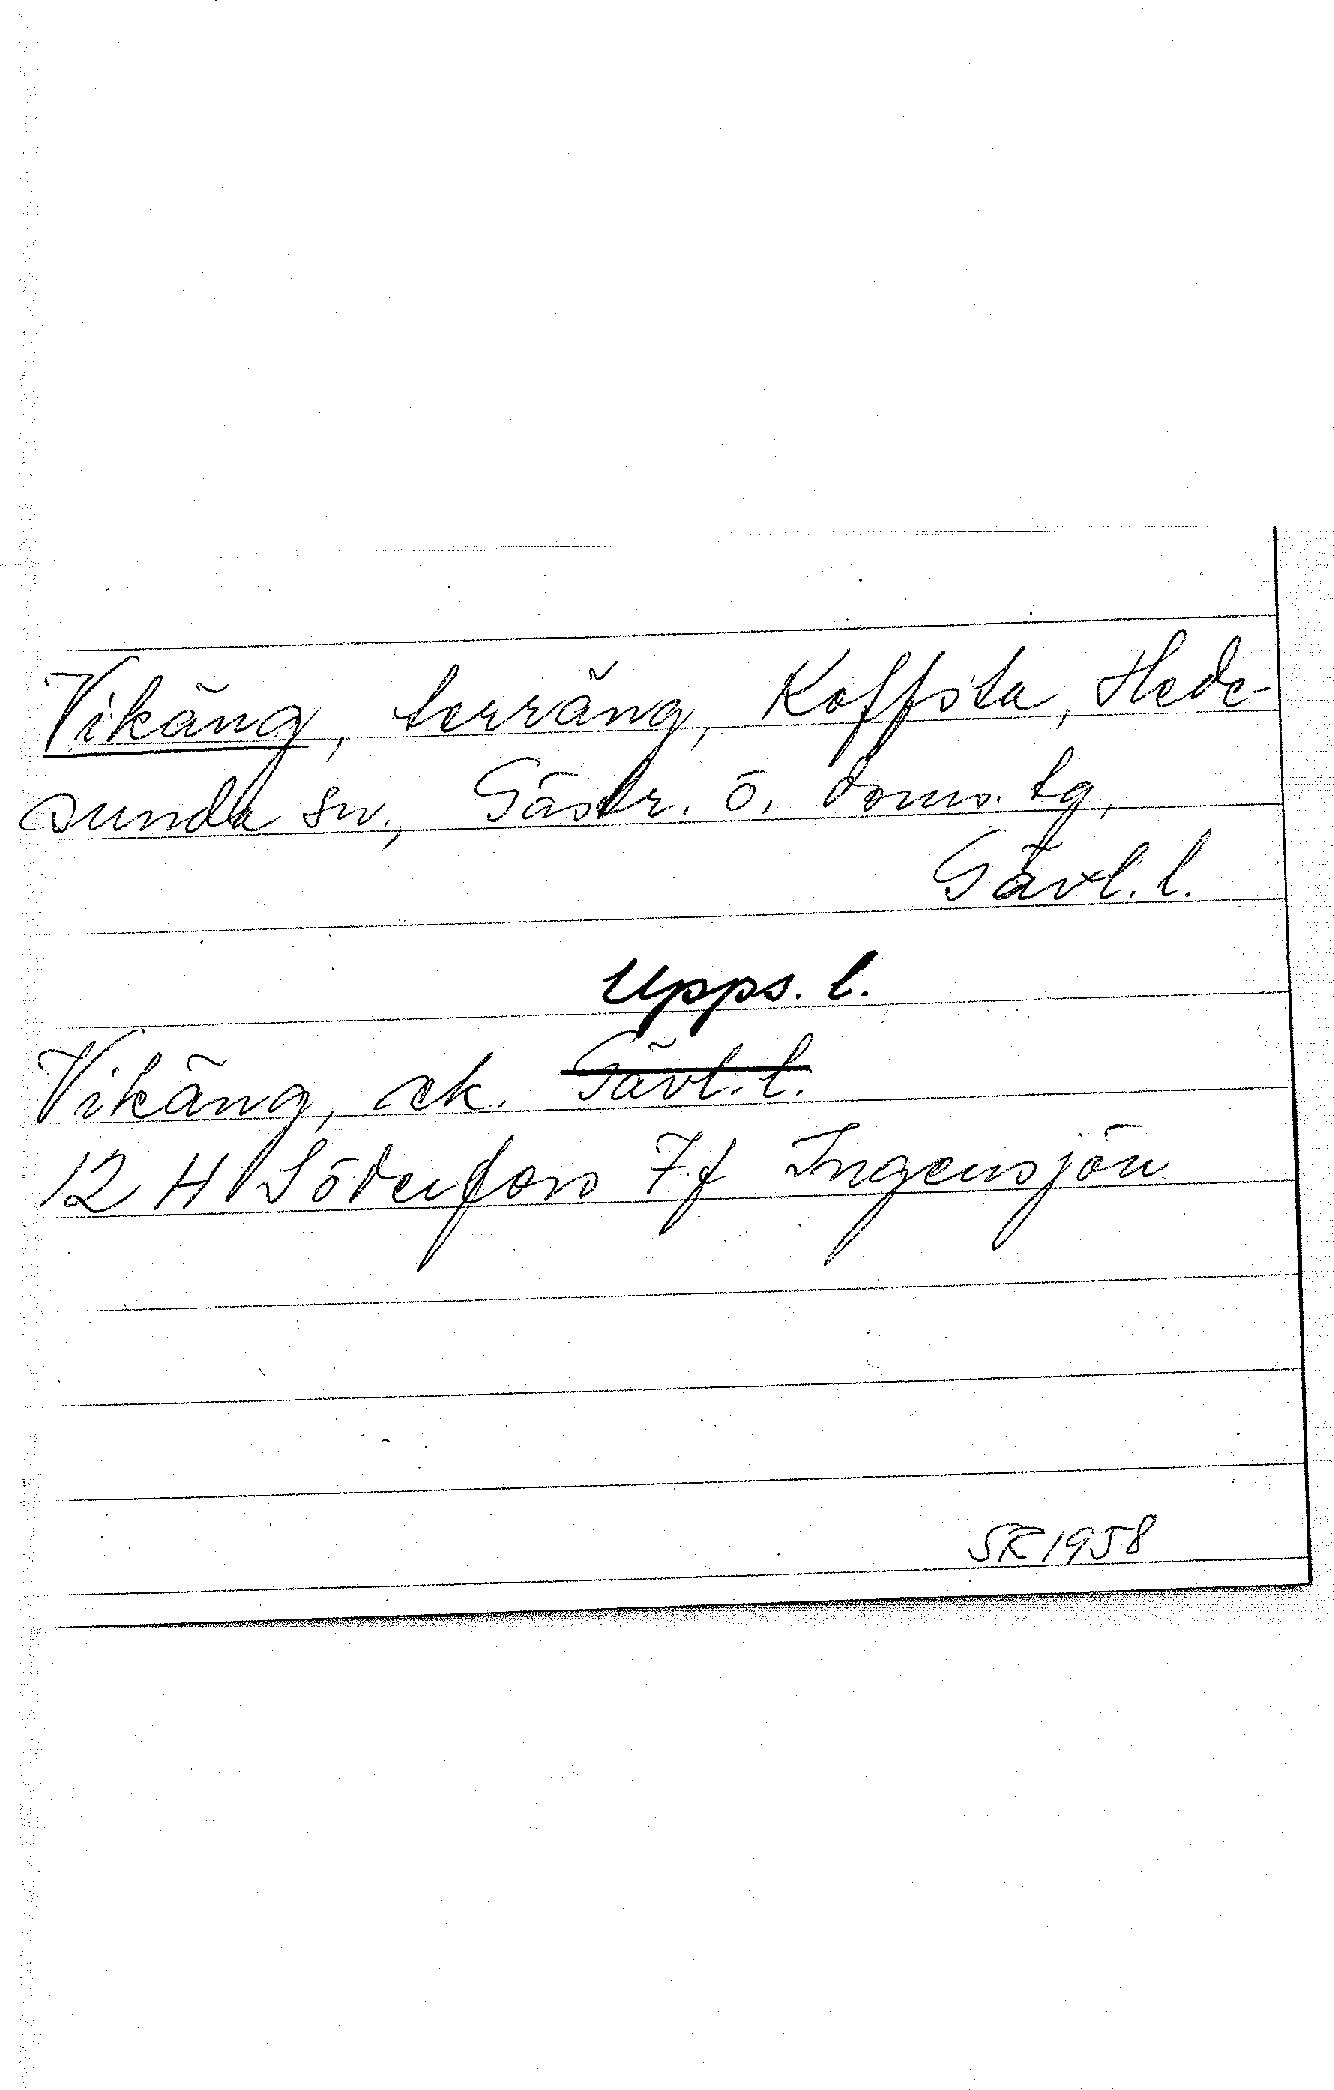 Vikäng, terräng, Koffsta, Hede-
sunda sn., Gästr. ö. doms. tg,
Gävl. l.
Upps. l.
Vikäng, ek. Gävl. l.
12 H Söderfors 7 f Ingensjön
SK 1958